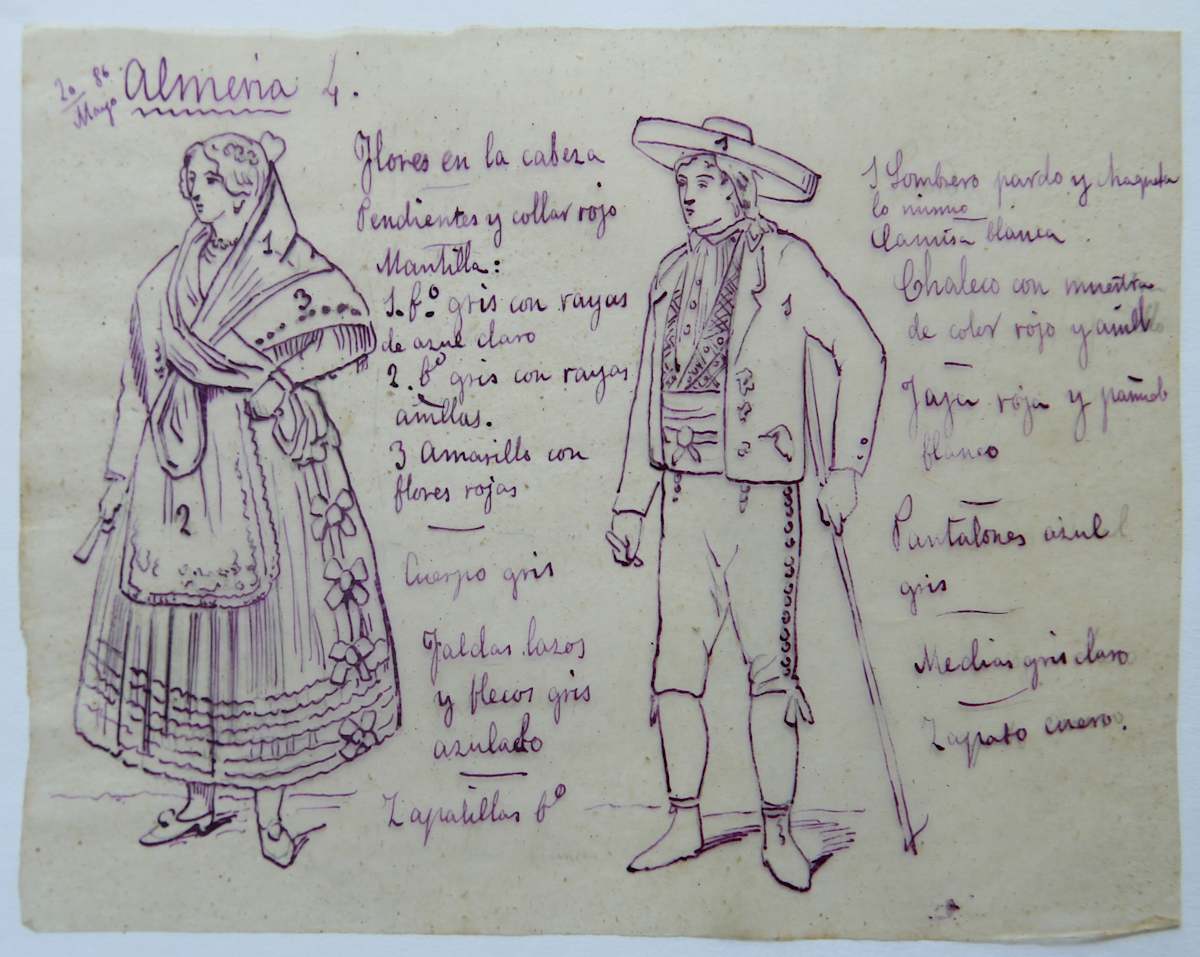 20 86
Mayo
Almeria 4.
Flores en la cabeza
Pendientes y collar rojo
Mantilla:
1. fº gris con rayas
de azul claro
2. fº gris con rayas
añillas.
3 Amarillo con
flores rojas
Cuerpo gris
Faldas lazos
y flecos gris
azulado
Zapatillas fº
1
3
2
1
1
1 Sombrero pardo y chaqueta
lo mismo
Camisa blanca
Chaleco con muestra
de color rojo y añil
Faja roja y pañolo
blanco
Pantalones azul
gris
Medias gris claro
Zapato cuero.
3